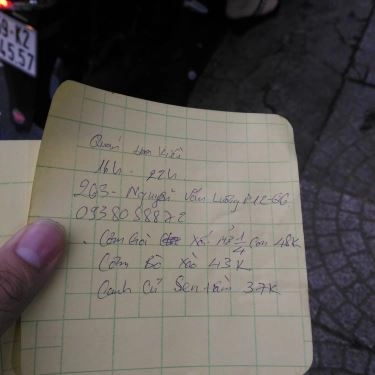 9-K2
45.57
Quán
16h - 22h
263 - Nguyễn Văn Lượng P12-GG
0938058872
. Cơm Gà Xối Mỡ 1/4 Con 48K
Cơm Bò Xào 43K
Canh Củ Sen Hầm 37K